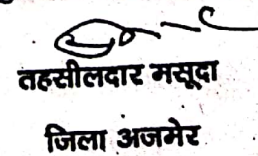 तहसीलदार मसूदा
जिला अजमेर